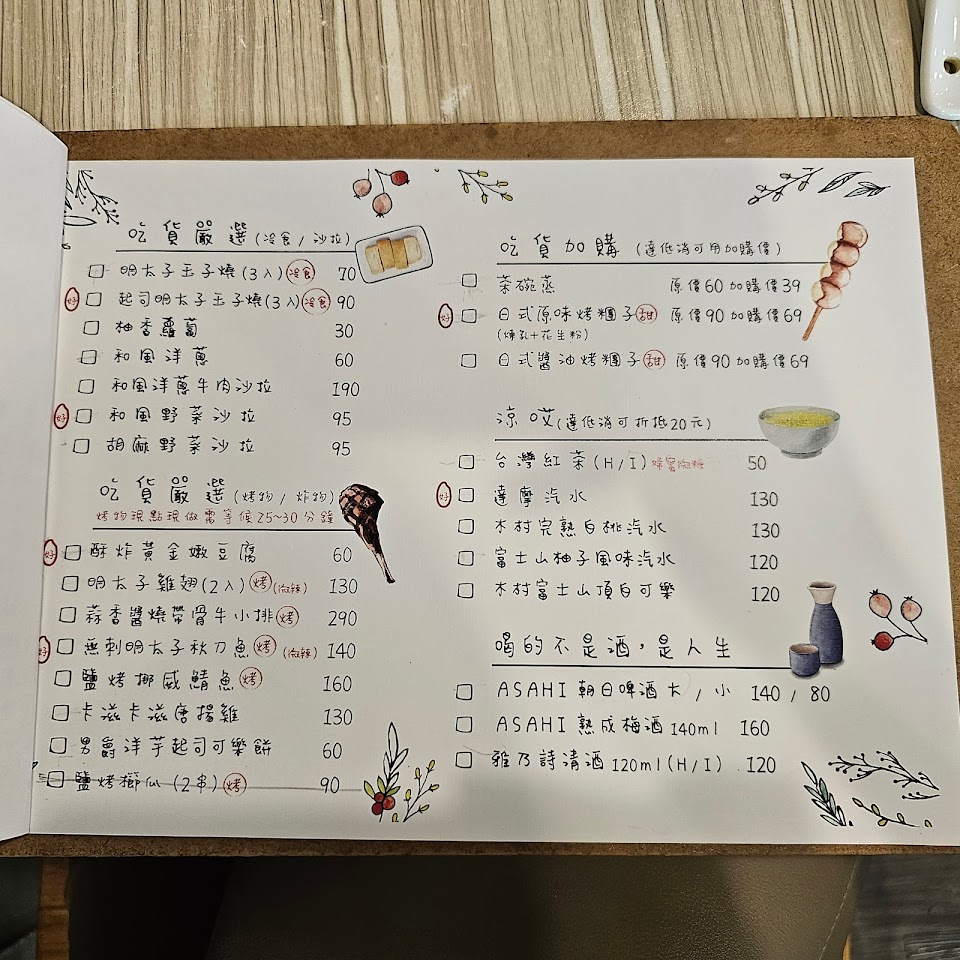 吃貨嚴選(冷食/沙拉)
明太子玉子燒(3入)冷食 70
好 起司明太子玉子燒(3入)冷食 90
柚香蘿蔔 30
和風洋蔥 60
和風洋蔥牛肉沙拉 190
好 和風野菜沙拉 95
胡麻野菜沙拉 95
吃貨嚴選(烤物/炸物)
烤物現點現做需等候25~30分鐘
好 酥炸黃金嫩豆腐 60
明太子雞翅(2入)烤(微辣) 130
蒜香醬燒帶骨牛小排烤 290
好 無刺明太子秋刀魚烤(微辣) 140
鹽烤挪威鯖魚烤 160
卡滋卡滋唐揚雞 130
男爵洋芋起司可樂餅 60
鹽烤櫛瓜(2串)烤 90
吃貨加購(達低消可用加購價)
茶碗蒸 原價60加購價39
好 日式原味烤糰子甜 原價90加購價69
(煉乳+花生粉)
日式醬油烤糰子甜 原價90加購價69
涼哎(達低消可折抵20元)
台灣紅茶(H/I)蜂蜜微糖 50
好 達摩汽水 130
木村完熟白桃汽水 130
富士山柚子風味汽水 120
木村富士山頂白可樂 120
喝的不是酒,是人生
ASAHI朝日啤酒大/小 140/80
ASAHI熟成梅酒140ml 160
雅乃詩清酒120ml(H/I) 120